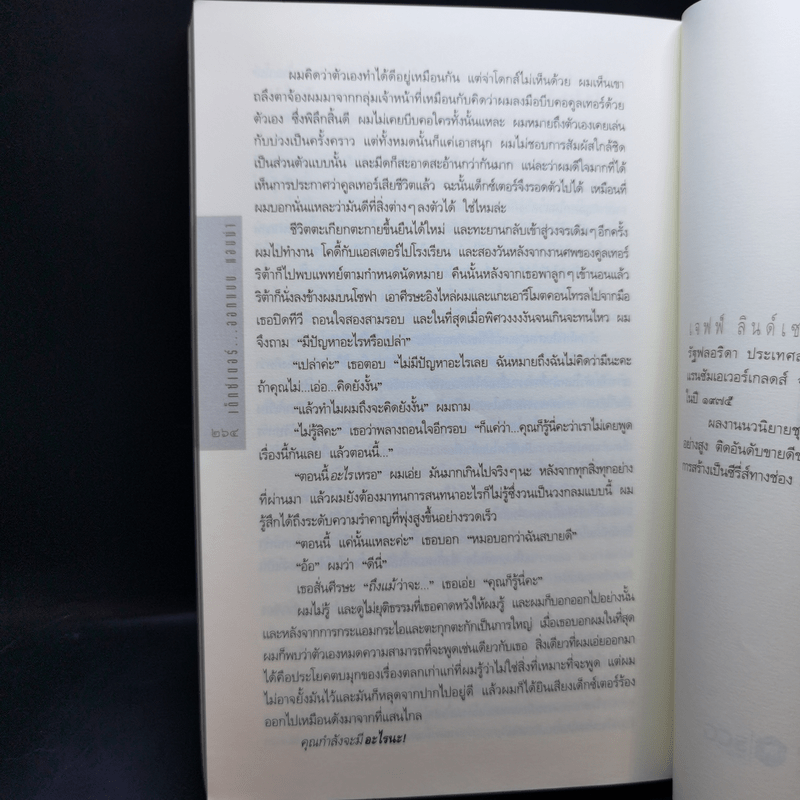 ผมคิดว่าตัวเองทำได้ดีอยู่เหมือนกัน แต่จ่าโดกส์ไม่เห็นด้วย ผมเห็นเขา
ถลึงตาจ้องผมมาจากกลุ่มเจ้าหน้าที่เหมือนกับคิดว่าผมลงมือบีบคอคูลเทอร์ด้วย
ตัวเอง ซึ่งพิลึกสิ้นดี ผมไม่เคยบีบคอใครทั้งนั้นแหละ ผมหมายถึงตัวเองเคยเล่น
กับบ่วงเป็นครั้งคราว แต่ทั้งหมดนั้นก็แค่เอาสนุก ผมไม่ชอบการสัมผัสใกล้ชิด
เป็นส่วนตัวแบบนั้น และมีดก็สะอาดสะอ้านกว่ากันมาก แน่ละว่าผมดีใจมากที่ได้
เห็นการประกาศว่าคูลเทอร์เสียชีวิตแล้ว ฉะนั้นเด็กซ์เตอร์จึงรอดตัวไปได้ เหมือนที่
ผมบอกนั่นแหละว่ามันดีที่สิ่งต่างๆ ลงตัวได้ ใช่ไหมล่ะ
ชีวิตตะเกียกตะกายขึ้นยืนได้ใหม่ และทะยานกลับเข้าสู่วงจรเดิมๆ อีกครั้ง
ผมไปทำงาน โคดี้กับแอสเตอร์ไปโรงเรียน และสองวันหลังจากงานศพของคูลเทอร์
ริต้าก็ไปพบแพทย์ตามกำหนดนัดหมาย คืนนั้นหลังจากเธอพาลูกๆ เข้านอนแล้ว
ริต้าก็นั่งลงข้างผมบนโซฟา เอาศีรษะอิงไหล่ผมและแกะเอารีโมตคอนโทรลไปจากมือ
เธอปิดทีวี ถอนใจสองสามรอบ และในที่สุดเมื่อพิศวงงงงันจนเกินจะทนไหว ผม
จึงถาม “มีปัญหาอะไรหรือเปล่า”
“เปล่าค่ะ” เธอตอบ “ไม่มีปัญหาอะไรเลย ฉันหมายถึงฉันไม่คิดว่ามีนะคะ
ถ้าคุณไม่...เอ่อ...คิดยังงั้น”
“แล้วทำไมผมถึงจะคิดยังงั้น” ผมถาม
“ไม่รู้สิคะ” เธอว่าพลางถอนใจอีกรอบ “ก็แค่ว่า...คุณก็รู้นี่คะว่าเราไม่เคยพูด
เรื่องนี้กันเลย แล้วตอนนี้...”
“ตอนนี้อะไรเหรอ” ผมเอ่ย มันมากเกินไปจริงๆ นะ หลังจากทุกสิ่งทุกอย่าง
ที่ผ่านมา แล้วผมยังต้องมาทนการสนทนาอะไรก็ไม่รู้ซึ่งวนเป็นวงกลมแบบนี้ ผม
รู้สึกได้ถึงระดับความรำคาญที่พุ่งสูงขึ้นอย่างรวดเร็ว
“ตอนนี้ แค่นั้นแหละค่ะ” เธอบอก “หมอบอกว่าฉันสบายดี”
“อ้อ” ผมว่า “ดีนี่”
เธอสั่นศีรษะ “ถึงแม้ว่าจะ...” เธอเอ่ย “คุณก็รู้นี่คะ”
ผมไม่รู้ และดูไม่ยุติธรรมที่เธอคาดหวังให้ผมรู้ และผมก็บอกออกไปอย่างนั้น
และหลังจากการกระแอมกระไอและตะกุกตะกักเป็นการใหญ่ เมื่อเธอบอกผมในที่สุด
ผมก็พบว่าตัวเองหมดความสามารถที่จะพูดเช่นเดียวกับเธอ สิ่งเดียวที่ผมเอ่ยออกมา
ได้คือประโยคตบมุกของเรื่องตลกเก่าแก่ที่ผมรู้ว่าไม่ใช่สิ่งที่เหมาะที่จะพูด แต่ผม
ไม่อาจยั้งมันไว้และมันก็หลุดจากปากไปอยู่ดี แล้วผมก็ได้ยินเสียงเด็กซ์เตอร์ร้อง
ออกไปเหมือนดังมาจากที่แสนไกล
คุณกำลังจะมีอะไรนะ!
เด็กซ์เตอร์...ออกแบบ แอบฆ่า
๒๖๔
เจฟฟ์ ลินด์เซ
รัฐฟลอริดา ประเทศส
แรนซัมเอเวอร์เกลดส์
ในปี ๑๙๗๕
ผลงานนวนิยายชุ
อย่างสูง ติดอันดับขายดีข
การสร้างเป็นซีรี่ส์ทางช่อง